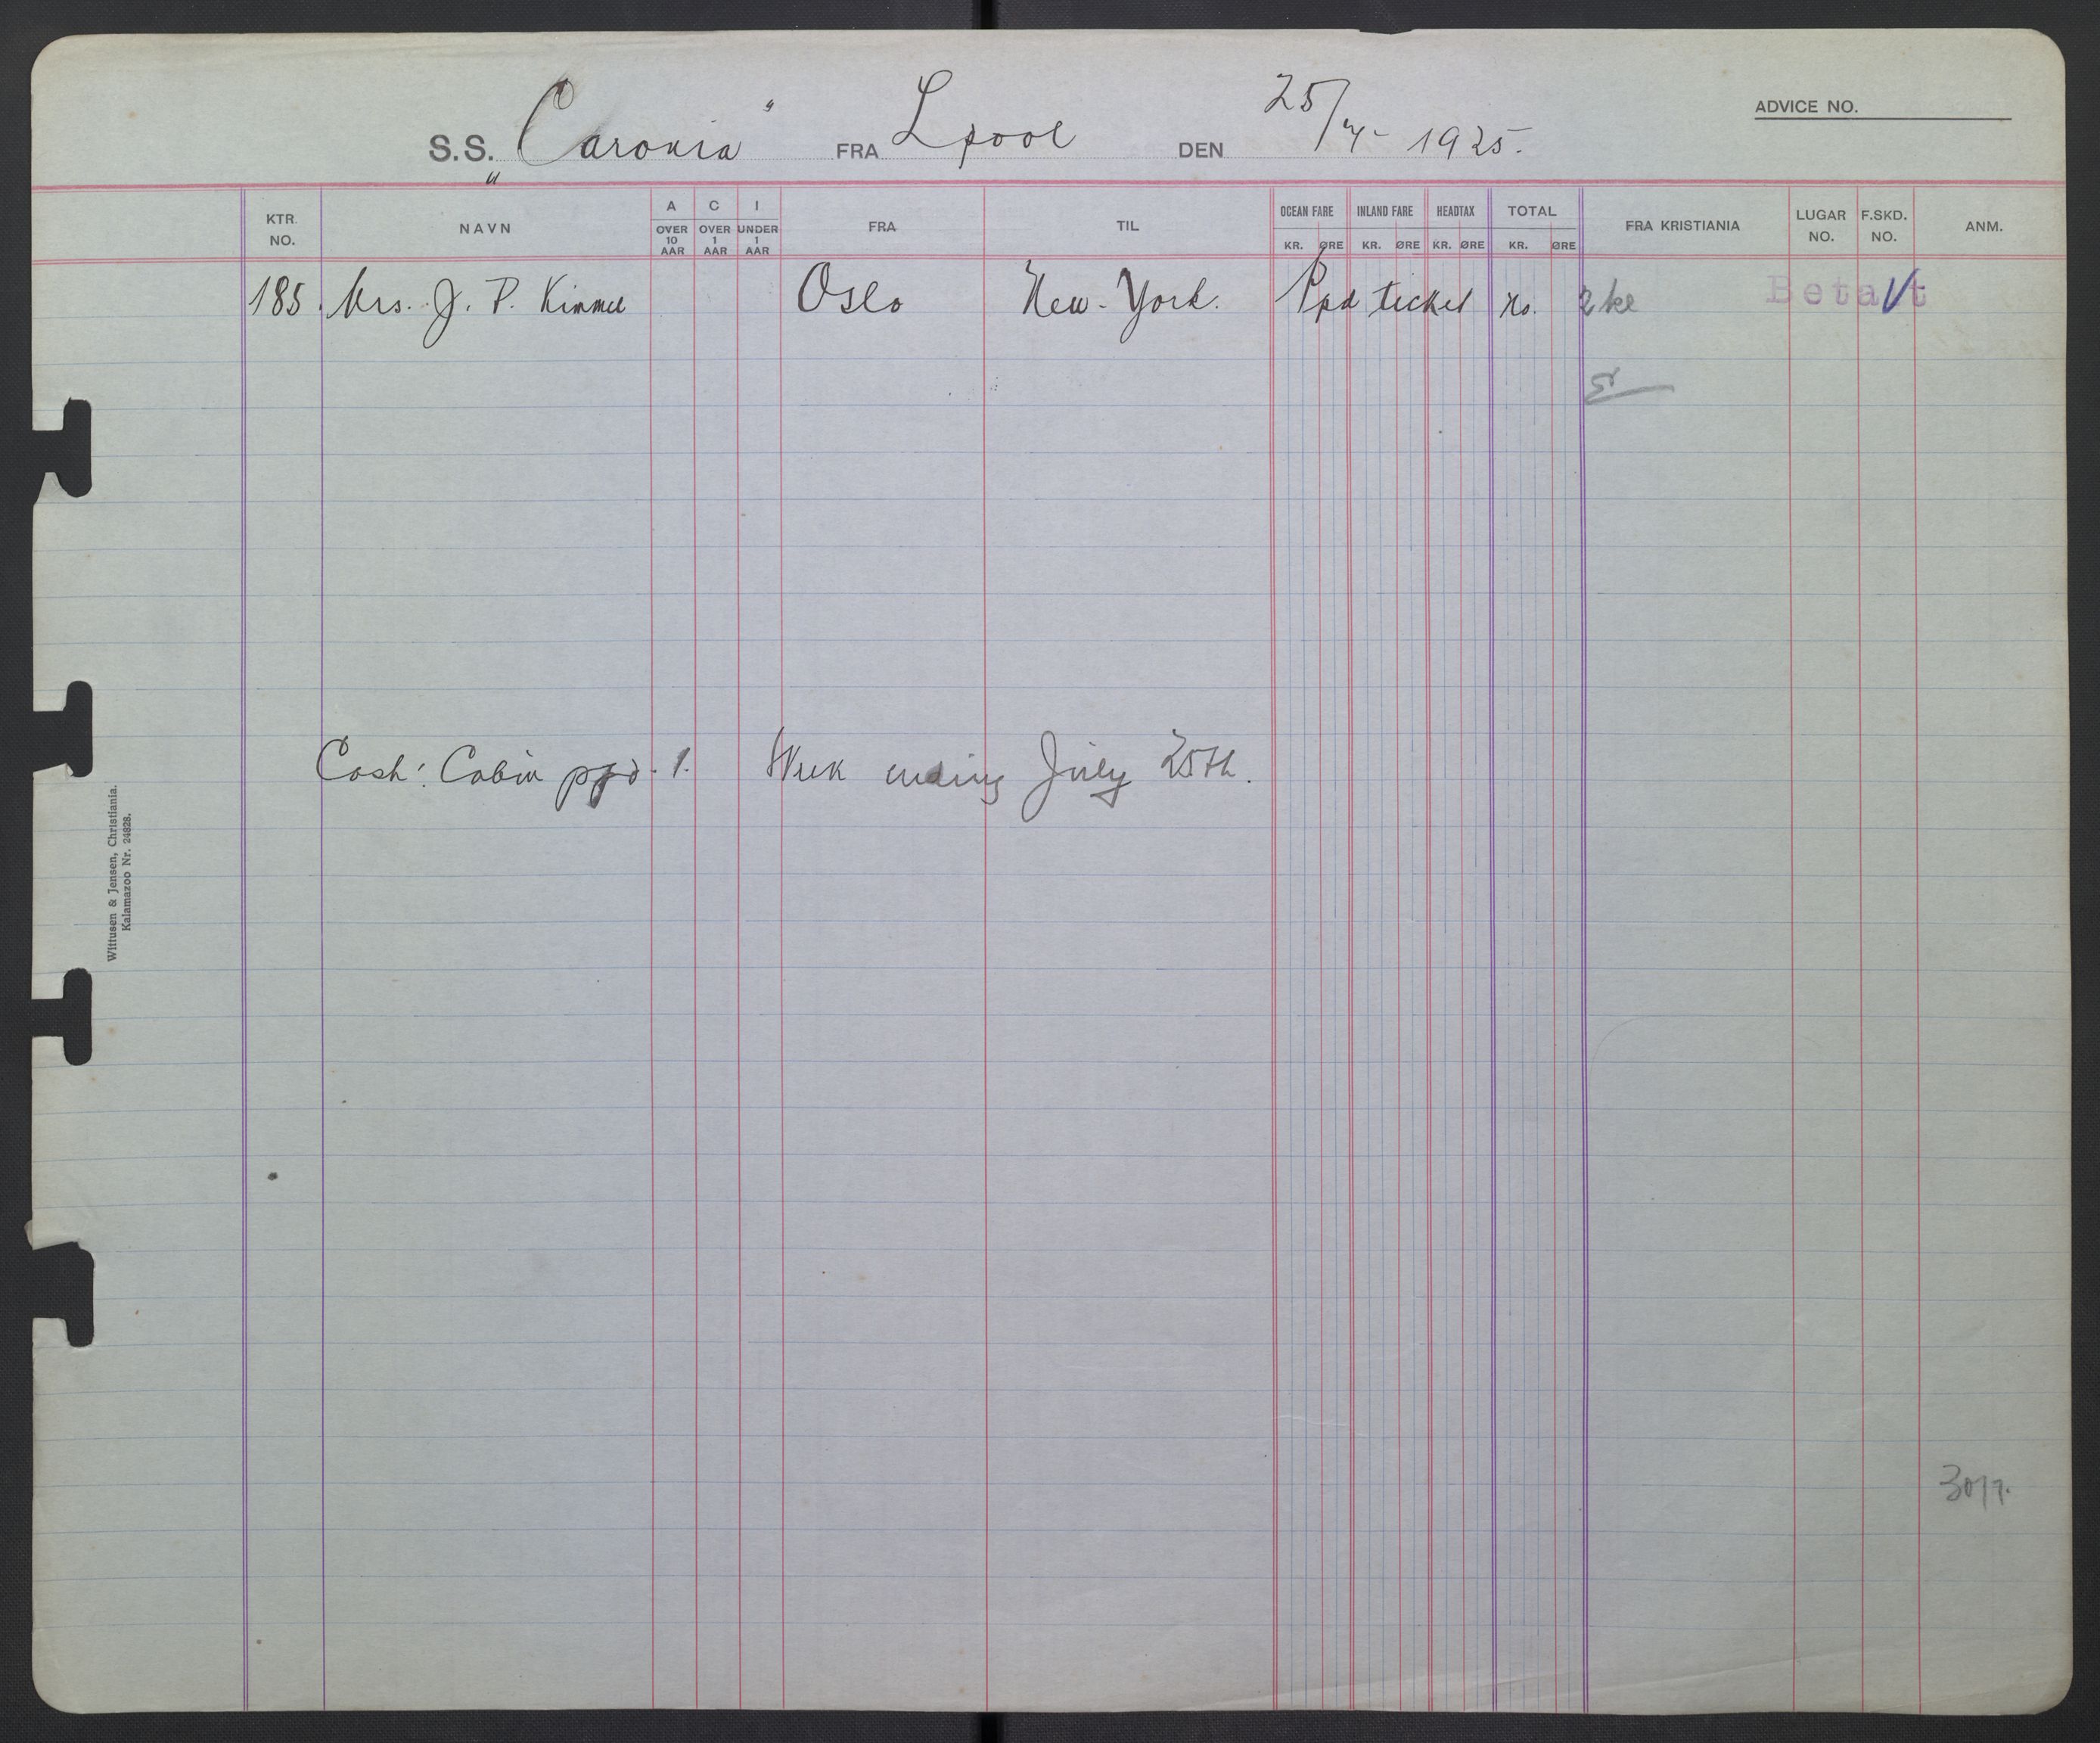 ADVICE NO.
S.S. „Caronia" FRA Lpool DEN 25/7- 1925.
KTR. NO. NAVN A OVER 10 AAR C OVER 1 AAR I UNDER 1 AAR FRA TIL OCEAN FARE KR. ØRE INLAND FARE KR. ØRE HEADTAX KR. ØRE TOTAL KR. ØRE FRA KRISTIANIA LUGAR NO. F.SKD. NO. ANM.
185. Mrs. J. P. Kimmel Oslo New-York. Ppd ticket no. 2 kl Betalt
Cash: Cabin ppd. 1. Week ending July 25th.
Wittusen & Jensen, Christiania.
Kalamazoo Nr. 24828.
30/7.